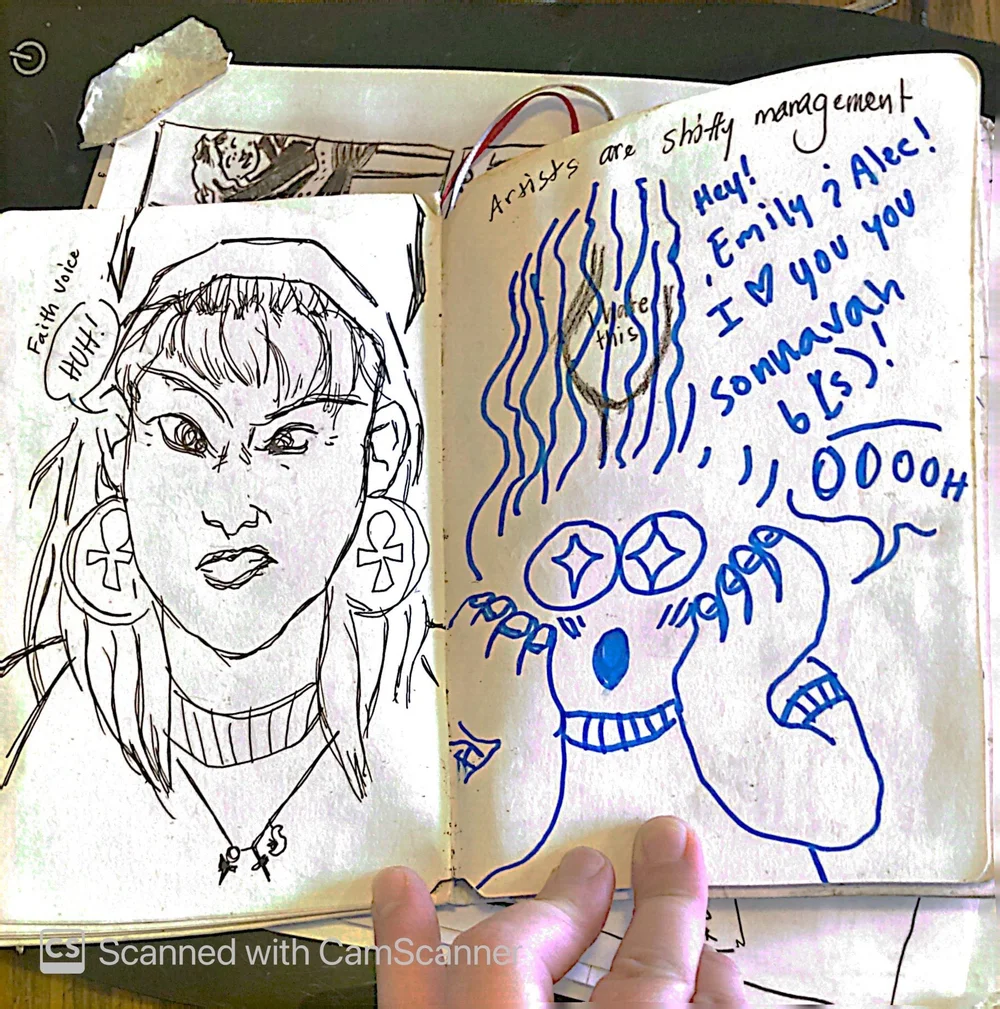 Faith voice
HUH!
Artists are shotty management
Hey!
Emily & Alec!
I ♡ you you
sonnavah
b(s)!
OOOOH
hate
this
CS Scanned with CamScanner